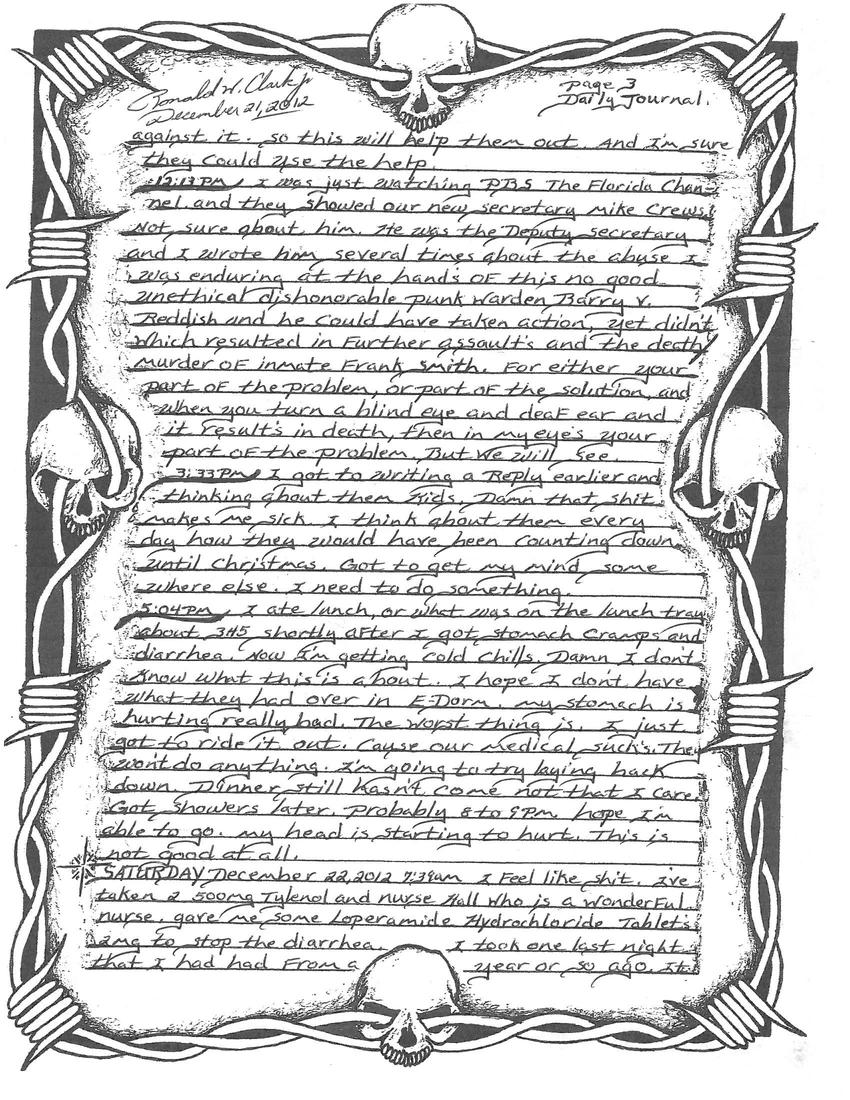 Ronald W. Clark Jr
December 21, 2012
page 3
Daily Journal.
against it. so this will help them out. And I'm sure
they could use the help.
12:13 PM I was just watching PBS The Florida Chan-
nel. and they showed our new secretary Mike Crews!
Not sure about him. He was the Deputy secretary
and I wrote him several times about the abuse I
was enduring at the hands OF this no good
unethical dishonorable punk Warden Barry V.
Reddish and he could have taken action, yet didn't
which resulted in Further assault's and the death/
murder OF inmate Frank Smith. For either your
part OF the problem, or part OF the solution, and
when you turn a blind eye and deaF ear and
it result's in death, then in my eye's your
part OF the problem, But we will see.
3:33 PM I got to writing a Reply earlier and
thinking about them Kids. Damn that shit
makes me sick. I think about them every
day how they would have been counting down
until Christmas. Got to get my mind some
where else. I need to do something.
5:04 PM I ate lunch, or what was on the lunch tray
about 3:45 shortly aFter I got stomach cramps and
diarrhea. Now I'm getting cold chills. Damn I don't
Know what this is about. I hope I don't have
what they had over in E-Dorm. my stomach is
hurting really bad. The worst thing is, I just
got to ride it out. Cause our medical suck's. They
won't do anything. I'm going to try laying back
down. Dinner still hasn't come not that I care.
Got showers later. probably 8 to 9 PM. hope I'm
able to go. my head is starting to hurt. This is
not good at all.
SATURDAY December 22, 2012 7:39am I Feel like shit. I've
taken 2 500mg Tylenol and nurse Hall who is a wonderFul
nurse. gave me some Loperamide Hydrochloride Tablet's
2mg to stop the diarrhea. I took one last night
that I had had From a year or so ago. It